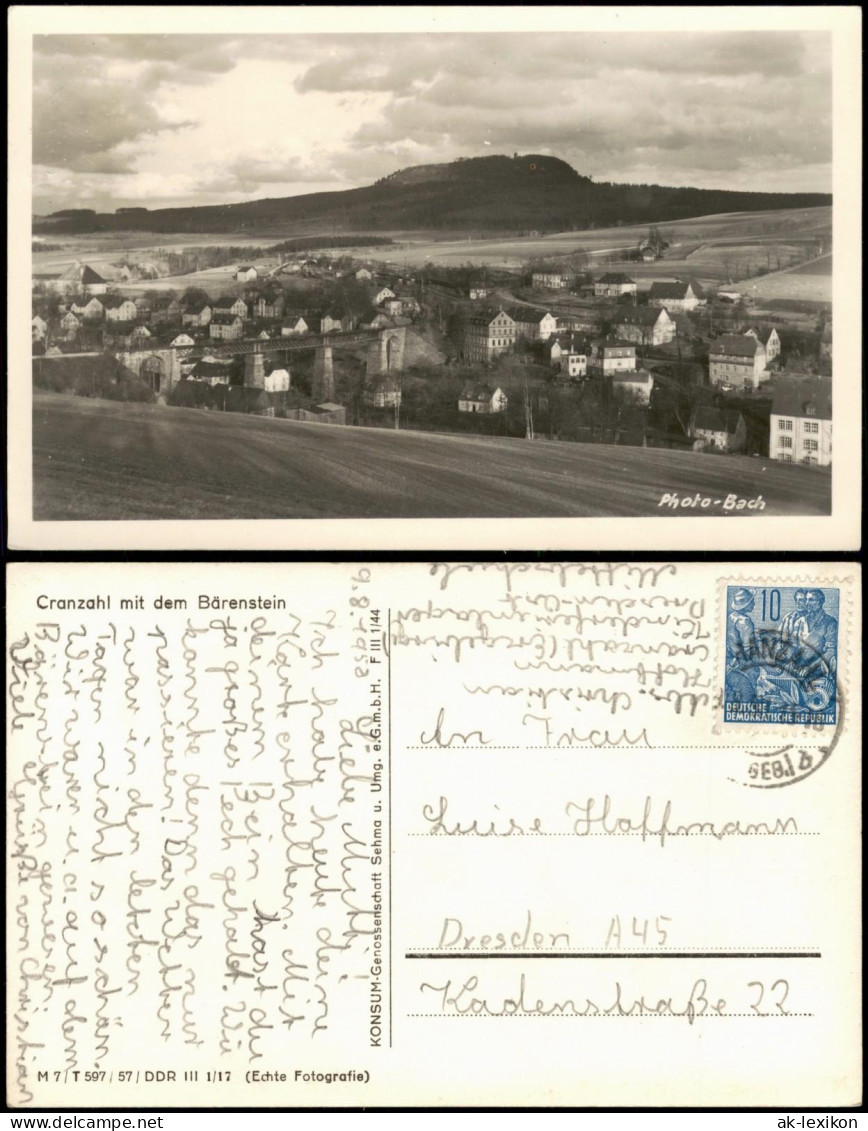 Photo-Bach
Cranzahl mit dem Bärenstein
9.8.1958
Liebe Mutti!
Ich habe heute deine
Karte erhalten. Mit
deinem Bein hast du
ja großes Pech gehabt. Wie
konnte denn das nur
passieren! Das Wetter
war in den letzten
Tagen nicht so schön.
Wir waren u.a. auf dem
Bärenstein gewesen.
Viele Grüße von Christian
M 7/T 597/57/DDR III 1/17 (Echte Fotografie)
KONSUM-Genossenschaft Sehma u. Umg. e.G.m.b.H. F III 1/44
Abs. Christian
Hoffmann
Cranzahl (Erzgebirge)
Kinderferienlager
Dresden-Ost
Mittelschule
10
DEUTSCHE
DEMOKRATISCHE REPUBLIK
An Frau
Luise Hoffmann
Dresden A45
Kadenstraße 22
ak-lexikon